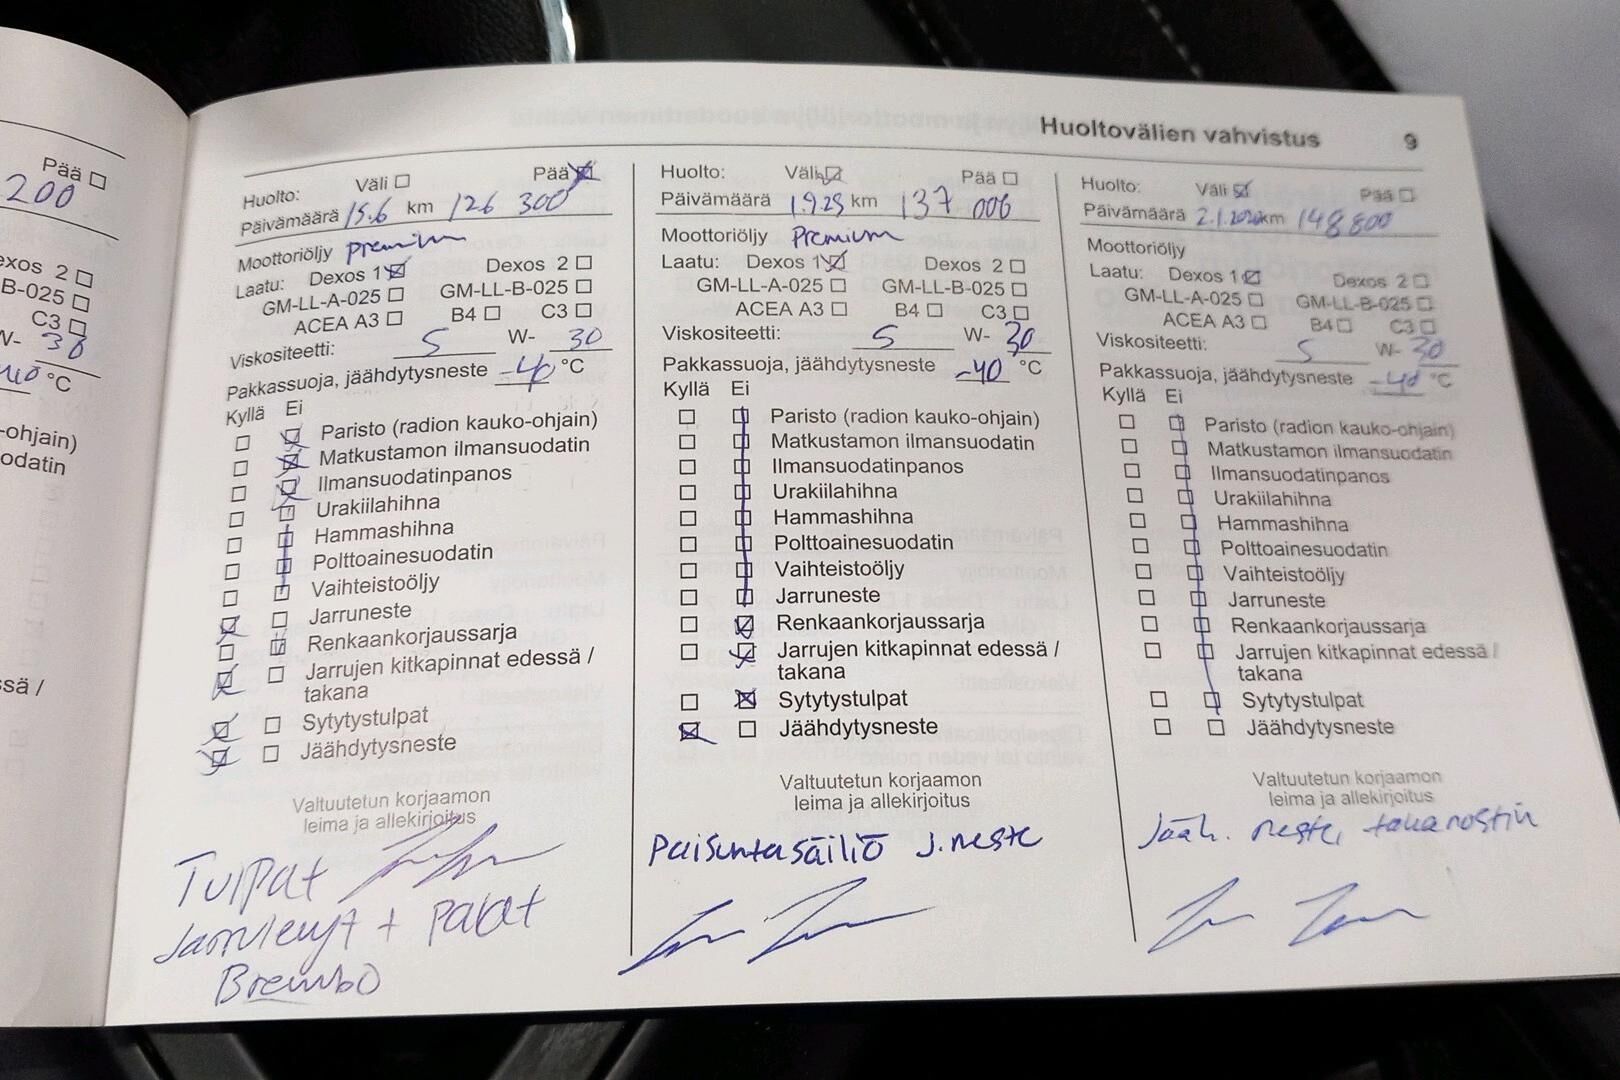 Pää ☐
200
exos 2 ☐
B-025 ☐
C3 ☐
W- 30
°C
-ohjain)
odatin
ssä /
Huoltovälien vahvistus 9
Huolto: Väli ☐ Pää ☒
Päivämäärä 15.6 km 126 300
Moottoriöljy premium
Laatu: Dexos 1 ☒ Dexos 2 ☐
GM-LL-A-025 ☐ GM-LL-B-025 ☐
ACEA A3 ☐ B4 ☐ C3 ☐
Viskositeetti: 5 W- 30
Pakkassuoja, jäähdytysneste -40 °C
Kyllä Ei
☐ ☒ Paristo (radion kauko-ohjain)
☐ ☒ Matkustamon ilmansuodatin
☐ ☒ Ilmansuodatinpanos
☐ ☒ Urakiilahihna
☐ ☒ Hammashihna
☐ ☒ Polttoainesuodatin
☐ ☒ Vaihteistoöljy
☒ ☐ Jarruneste
☐ ☒ Renkaankorjaussarja
☒ ☐ Jarrujen kitkapinnat edessä /
takana
☒ ☐ Sytytystulpat
☒ ☐ Jäähdytysneste
Valtuutetun korjaamon
leima ja allekirjoitus
Tulpat
Jarrulevyt + palat
Brembo
Huolto: Väli ☒ Pää ☐
Päivämäärä km 137 006
Moottoriöljy Premium
Laatu: Dexos 1 ☒ Dexos 2 ☐
GM-LL-A-025 ☐ GM-LL-B-025 ☐
ACEA A3 ☐ B4 ☐ C3 ☐
Viskositeetti: 5 W- 30
Pakkassuoja, jäähdytysneste -40 °C
Kyllä Ei
☐ ☒ Paristo (radion kauko-ohjain)
☐ ☒ Matkustamon ilmansuodatin
☐ ☒ Ilmansuodatinpanos
☐ ☒ Urakiilahihna
☐ ☒ Hammashihna
☐ ☒ Polttoainesuodatin
☐ ☒ Vaihteistoöljy
☐ ☒ Jarruneste
☐ ☒ Renkaankorjaussarja
☐ ☒ Jarrujen kitkapinnat edessä /
takana
☐ ☒ Sytytystulpat
☒ ☐ Jäähdytysneste
Valtuutetun korjaamon
leima ja allekirjoitus
Paisuntasäiliö J.neste
Huolto: Väli ☒ Pää ☐
Päivämäärä 2.1.2020 km 148 800
Moottoriöljy
Laatu: Dexos 1 ☒ Dexos 2 ☐
GM-LL-A-025 ☐ GM-LL-B-025 ☐
ACEA A3 ☐ B4 ☐ C3 ☐
Viskositeetti: 5 W- 30
Pakkassuoja, jäähdytysneste -40 °C
Kyllä Ei
☐ ☒ Paristo (radion kauko-ohjain)
☐ ☒ Matkustamon ilmansuodatin
☐ ☒ Ilmansuodatinpanos
☐ ☒ Urakiilahihna
☐ ☒ Hammashihna
☐ ☒ Polttoainesuodatin
☐ ☒ Vaihteistoöljy
☐ ☒ Jarruneste
☐ ☒ Renkaankorjaussarja
☐ ☒ Jarrujen kitkapinnat edessä /
takana
☐ ☒ Sytytystulpat
☐ ☐ Jäähdytysneste
Valtuutetun korjaamon
leima ja allekirjoitus
Jääh. neste, takanostin